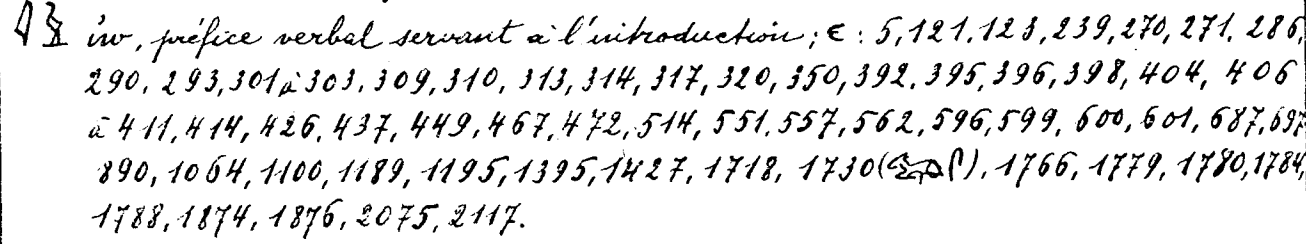 𓇋𓅱 iw, préfice verbal servant à l'introduction; ϵ: 5, 121. 123, 239, 270, 271. 286,
290. 293, 301 à 303. 309, 310, 313, 314, 317, 320, 350, 392. 395, 396, 398, 404, 406
à 411, 414, 426, 437, 449, 467, 472, 514, 551. 557, 562, 596, 599, 600, 601, 687, 697
890, 1064, 1100, 1189, 1195, 1395, 1427, 1718, 1730 (). 1766, 1779, 1780, 1784,
1788, 1874, 1876, 2075, 2117.